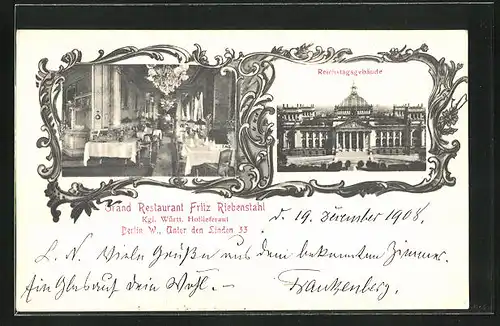 Reichstagsgebäude
Grand Restaurant Fritz Riebenstahl
Kgl. Württ. Hoflieferant
Berlin W., Unter den Linden 33
d. 19. Dezember 1908.
L. N. Viele Grüße aus dem bekannten Zimmer.
Ein Glas auf Dein Wohl. —
Frankenberg.